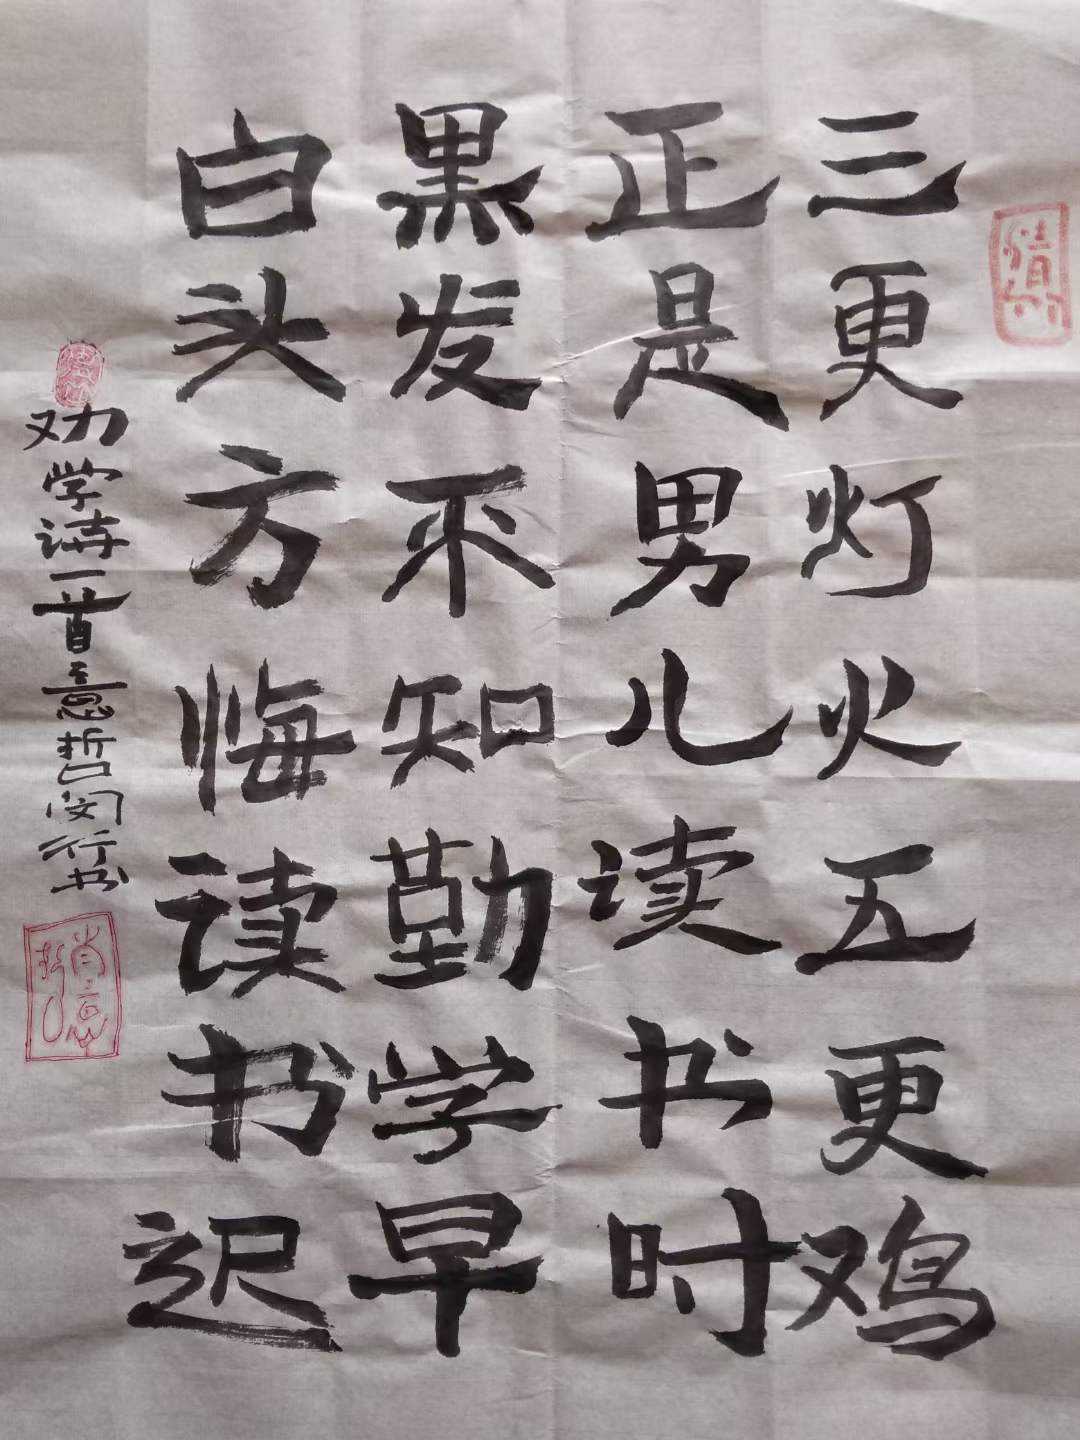 三更灯火五更鸡
正是男儿读书时
黑发不知勤学早
白头方悔读书迟
劝学诗一首意哲闵行书